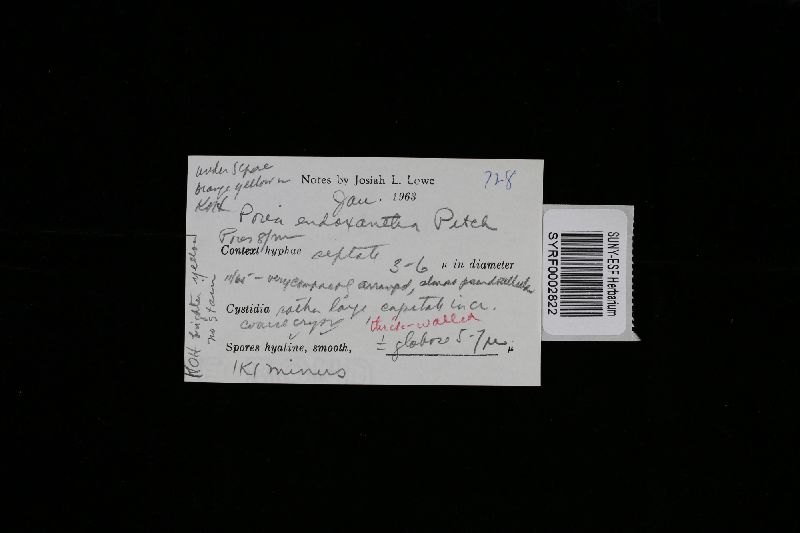 under scope
orange yellow in
KOH
Notes by Josiah L. Lowe
728
Jan. 1963
Poria endoxantha Petch
Pores 8/mm
Context hyphae septate 3-6 μ in diameter
- very compactly arranged, almost
Cystidia rather large capitate incr.
coarse thick-walled
Spores hyaline, smooth, ± globose 5-7μ μ
IKI minus
KOH brighter yellow
no stain
SUNY-ESF Herbarium
SYRF0002822